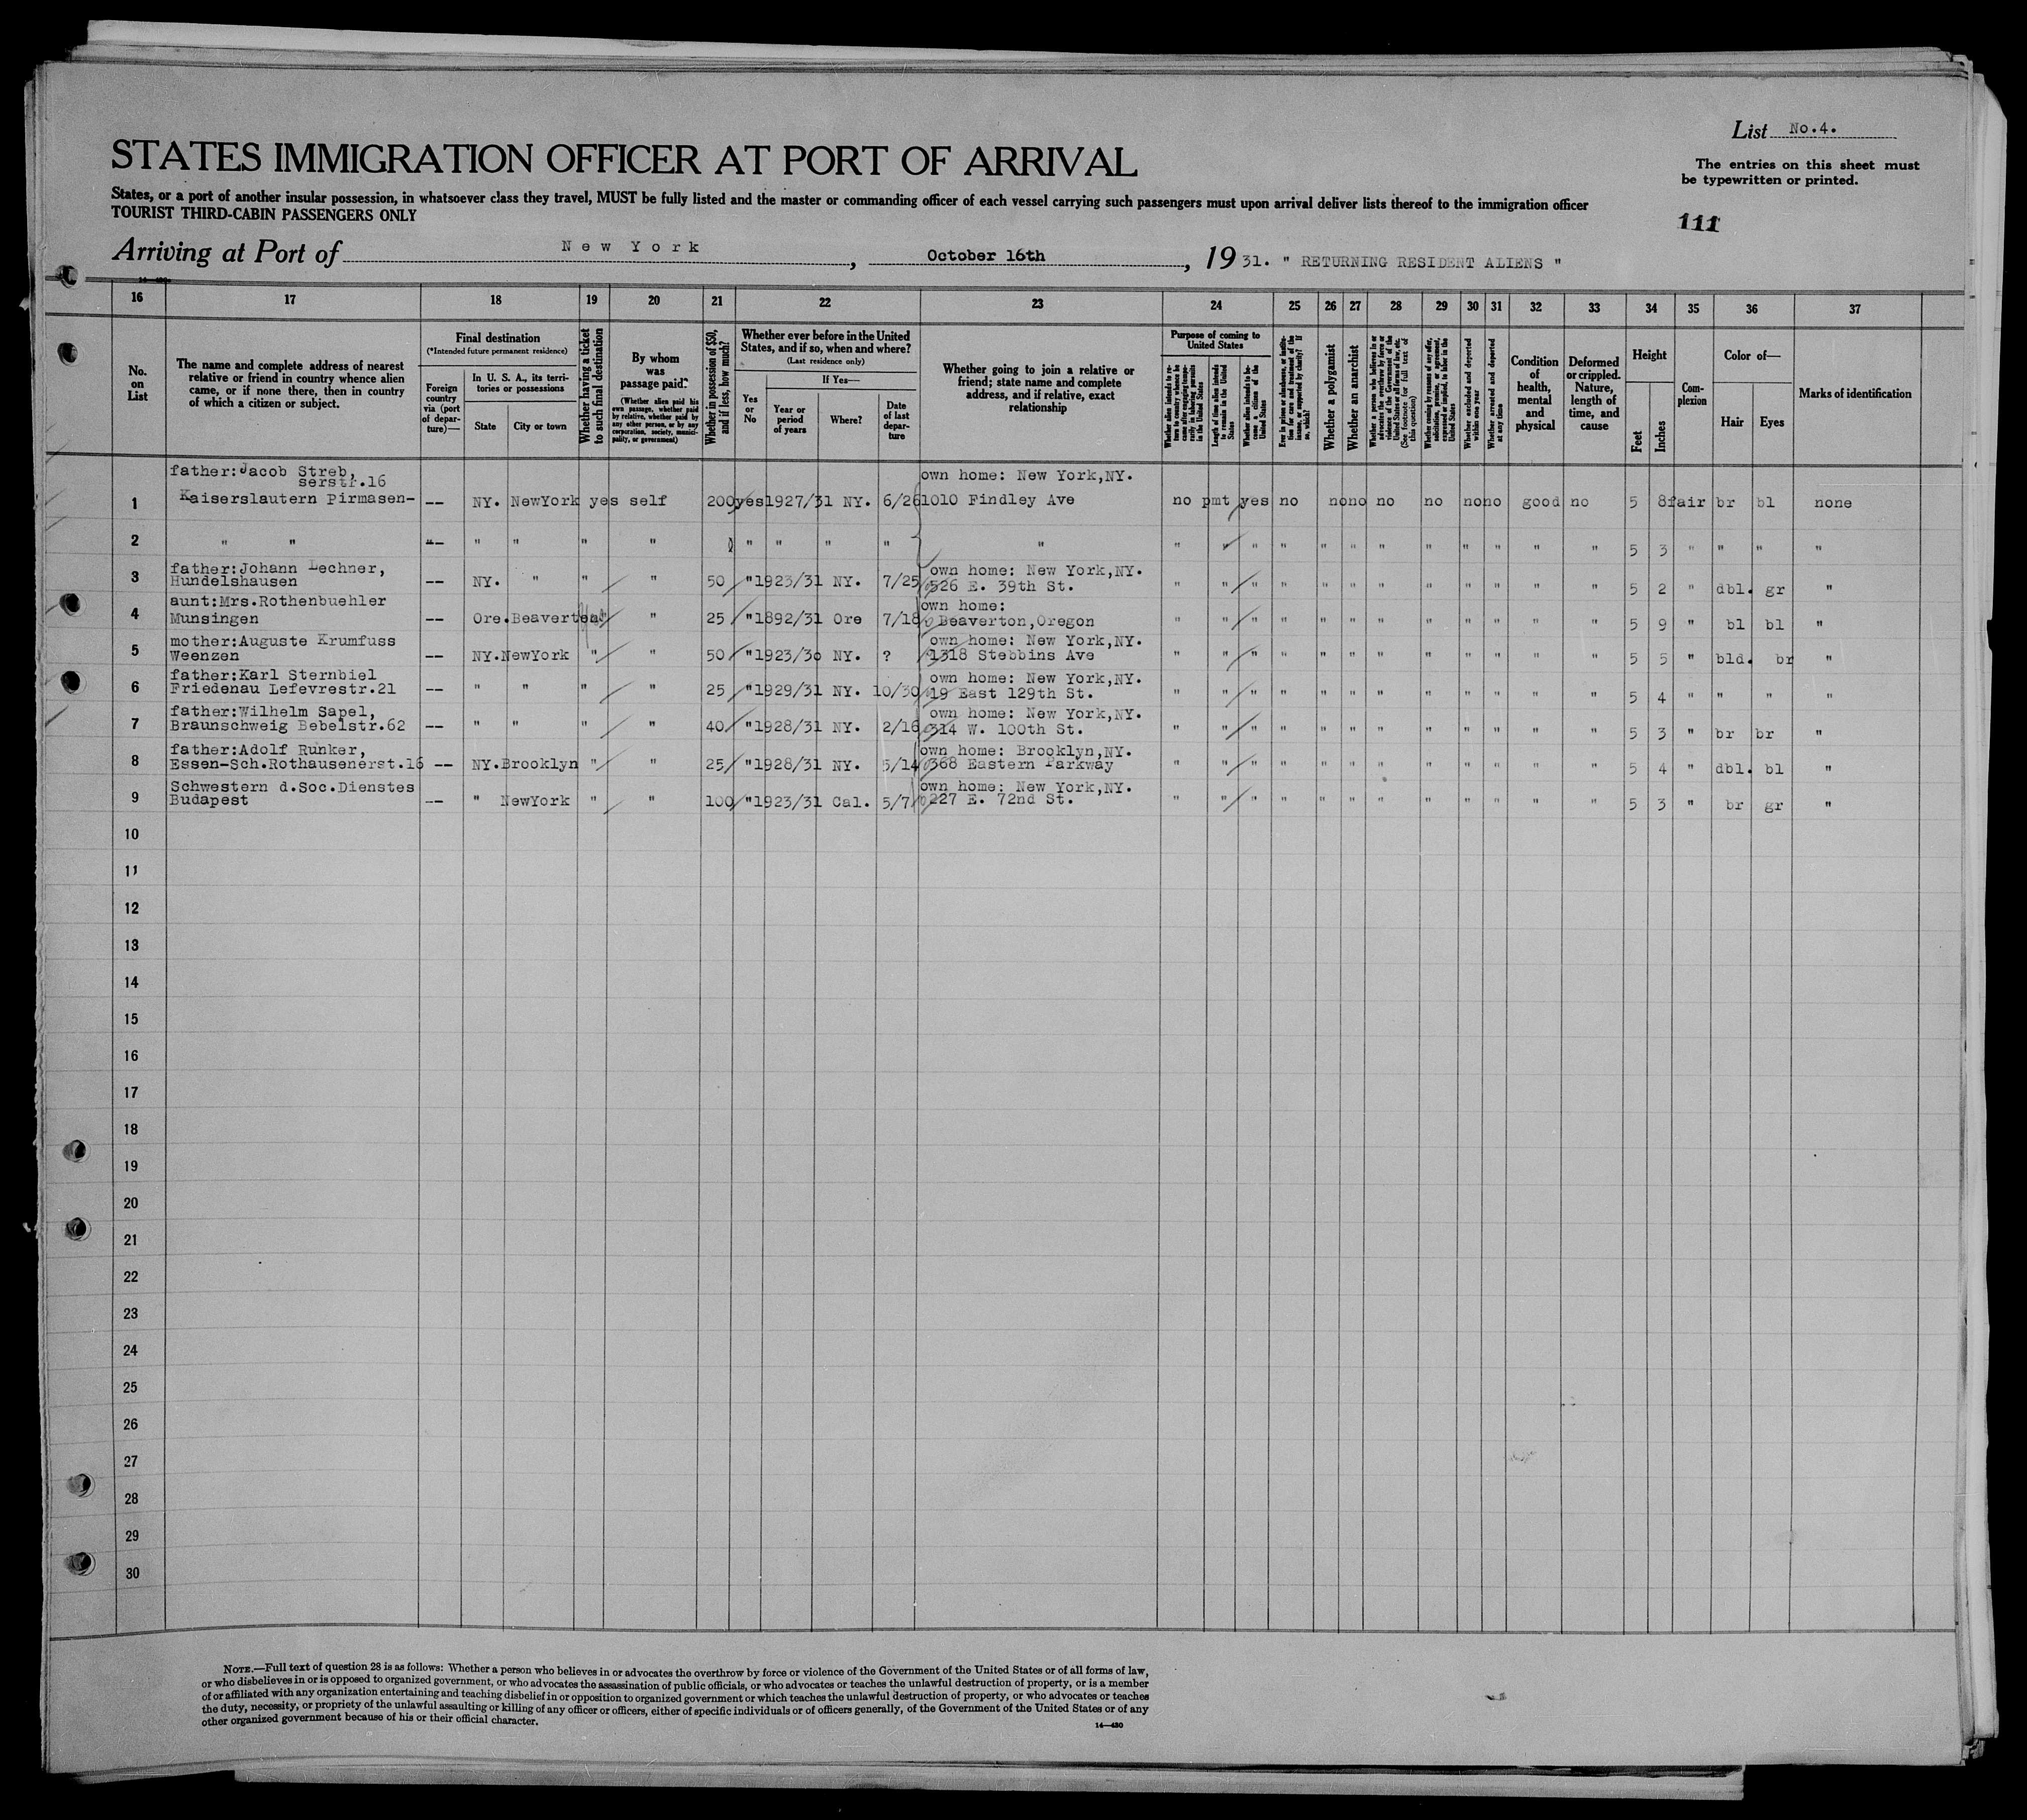 List No.4.
STATES IMMIGRATION OFFICER AT PORT OF ARRIVAL
The entries on this sheet must
be typewritten or printed.
States, or a port of another insular possession, in whatsoever class they travel, MUST be fully listed and the master or commanding officer of each vessel carrying such passengers must upon arrival deliver lists thereof to the immigration officer
TOURIST THIRD-CABIN PASSENGERS ONLY
111
Arriving at Port of New York, October 16th, 1931. " RETURNING RESIDENT ALIENS "
16 17 18 19 20 21 22 23 24 25 26 27 28 29 30 31 32 33 34 35 36 37
No. on List
The name and complete address of nearest relative or friend in country whence alien came, or if none there, then in country of which a citizen or subject.
Final destination
(*Intended future permanent residence)
Foreign country via (port of departure)—
In U. S. A., its territories or possessions
State
City or town
Whether having a ticket to such final destination
By whom was passage paid?
(Whether alien paid his own passage, whether paid by relative, whether paid by any other person, or by any corporation, society, municipality, or government)
Whether in possession of $50, and if less, how much?
Whether ever before in the United States, and if so, when and where?
(Last residence only)
Yes or No
If Yes—
Year or period of years
Where?
Date of last departure
Whether going to join a relative or friend; state name and complete address, and if relative, exact relationship
Purpose of coming to United States
Whether alien intends to return to country whence he came after engaging temporarily in laboring pursuits in the United States
Length of time alien intends to remain in the United States
Whether alien intends to become a citizen of the United States
Ever in prison or almshouse, or institution for care and treatment of the insane, or supported by charity? If so, which?
Whether a polygamist
Whether an anarchist
Whether a person who believes in or advocates the overthrow by force or violence of the Government of the United States or all forms of law, etc. (See footnote for full text of this question)
Whether coming by reason of any offer, solicitation, promise, or agreement, expressed or implied, to labor in the United States
Whether excluded and deported within one year
Whether arrested and deported at any time
Condition of health, mental and physical
Deformed or crippled. Nature, length of time, and cause
Height
Feet
Inches
Complexion
Color of—
Hair
Eyes
Marks of identification
father:Jacob Streb, own home: New York,NY.
serstr.16
1 Kaiserslautern Pirmasen- -- NY. NewYork yes self 200 yes 1927/31 NY. 6/26 1010 Findley Ave no pmt yes no no no no no no no good no 5 8 fair br bl none
2 " " -- " " " " " " " " " " " " " " " " " " " " " 5 3 " " " "
father:Johann Lechner, own home: New York,NY.
3 Hundelshausen -- NY. " " " 50 " 1923/31 NY. 7/25 526 E. 39th St. " " " " " " " " " " " " 5 2 " dbl. gr "
aunt:Mrs.Rothenbuehler own home:
4 Munsingen -- Ore. Beaverton " " 25 " 1892/31 Ore 7/18 Beaverton,Oregon " " " " " " " " " " " " 5 9 " bl bl "
mother:Auguste Krumfuss own home: New York,NY.
5 Weenzen -- NY. NewYork " " 50 " 1923/30 NY. ? 1318 Stebbins Ave " " " " " " " " " " " " 5 5 " bld. br "
father:Karl Sternbiel own home: New York,NY.
6 Friedenau Lefevrestr.21 -- " " " " 25 " 1929/31 NY. 10/30 19 East 129th St. " " " " " " " " " " " " 5 4 " " " "
father:Wilhelm Sapel, own home: New York,NY.
7 Braunschweig Bebelstr.62 -- " " " " 40 " 1928/31 NY. 2/16 314 W. 100th St. " " " " " " " " " " " " 5 3 " br br "
father:Adolf Runker, own home: Brooklyn,NY.
8 Essen-Sch.Rothausenerst.16 -- NY. Brooklyn " " 25 " 1928/31 NY. 5/14 368 Eastern Parkway " " " " " " " " " " " " 5 4 " dbl. bl "
Schwestern d.Soc.Dienstes own home: New York,NY.
9 Budapest -- " NewYork " " 100 " 1923/31 Cal. 5/7 227 E. 72nd St. " " " " " " " " " " " " 5 3 " br gr "
10
11
12
13
14
15
16
17
18
19
20
21
22
23
24
25
26
27
28
29
30
NOTE.—Full text of question 28 is as follows: Whether a person who believes in or advocates the overthrow by force or violence of the Government of the United States or of all forms of law,
or who disbelieves in or is opposed to organized government, or who advocates the assassination of public officials, or who advocates or teaches the unlawful destruction of property, or is a member
of or affiliated with any organization entertaining and teaching disbelief in or opposition to organized government or which teaches the unlawful destruction of property, or who advocates or teaches
the duty, necessity, or propriety of the unlawful assaulting or killing of any officer or officers, either of specific individuals or of officers generally, of the Government of the United States or of any
other organized government because of his or their official character.
14—430